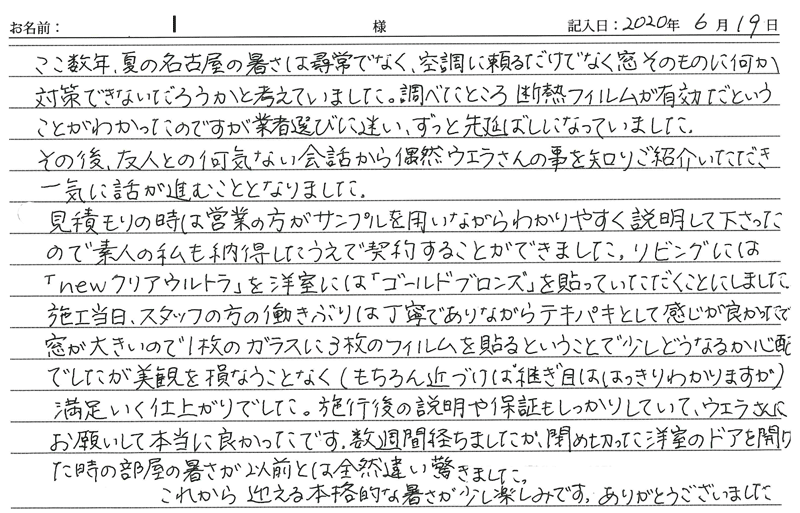 お名前： 様 記入日：2020年 6月19日
ここ数年、夏の名古屋の暑さは尋常でなく、空調に頼るだけでなく窓そのものに何か
対策できないだろうかと考えていました。調べたところ断熱フィルムが有効だという
ことがわかったのですが業者選びに迷い、ずっと先延ばしになっていました。
その後、友人との何気ない会話から偶然ウエラさんの事を知りご紹介いただき
一気に話が進むこととなりました。
見積もりの時は営業の方がサンプルを用いながらわかりやすく説明して下さった
ので素人の私も納得したうえで契約することができました。リビングには
「newクリアウルトラ」を洋室には「ゴールドブロンズ」を貼っていただくことにしました
施工当日、スタッフの方の働きぶりは丁寧でありながらテキパキとして感じが良かったで
窓が大きいので1枚のガラスに3枚のフィルムを貼るということで少しどうなるか心配
でしたが美観を損なうことなく(もちろん近づけば継ぎ目ははっきりわかりますが)
満足いく仕上がりでした。施行後の説明や保証もしっかりしていて、ウエラさんに
お願いして本当に良かったです。数週間経ちましたが、閉め切った洋室のドアを開け
た時の部屋の暑さが以前とは全然違い驚きました。
これから迎える本格的な暑さが少し楽しみです。ありがとうございました